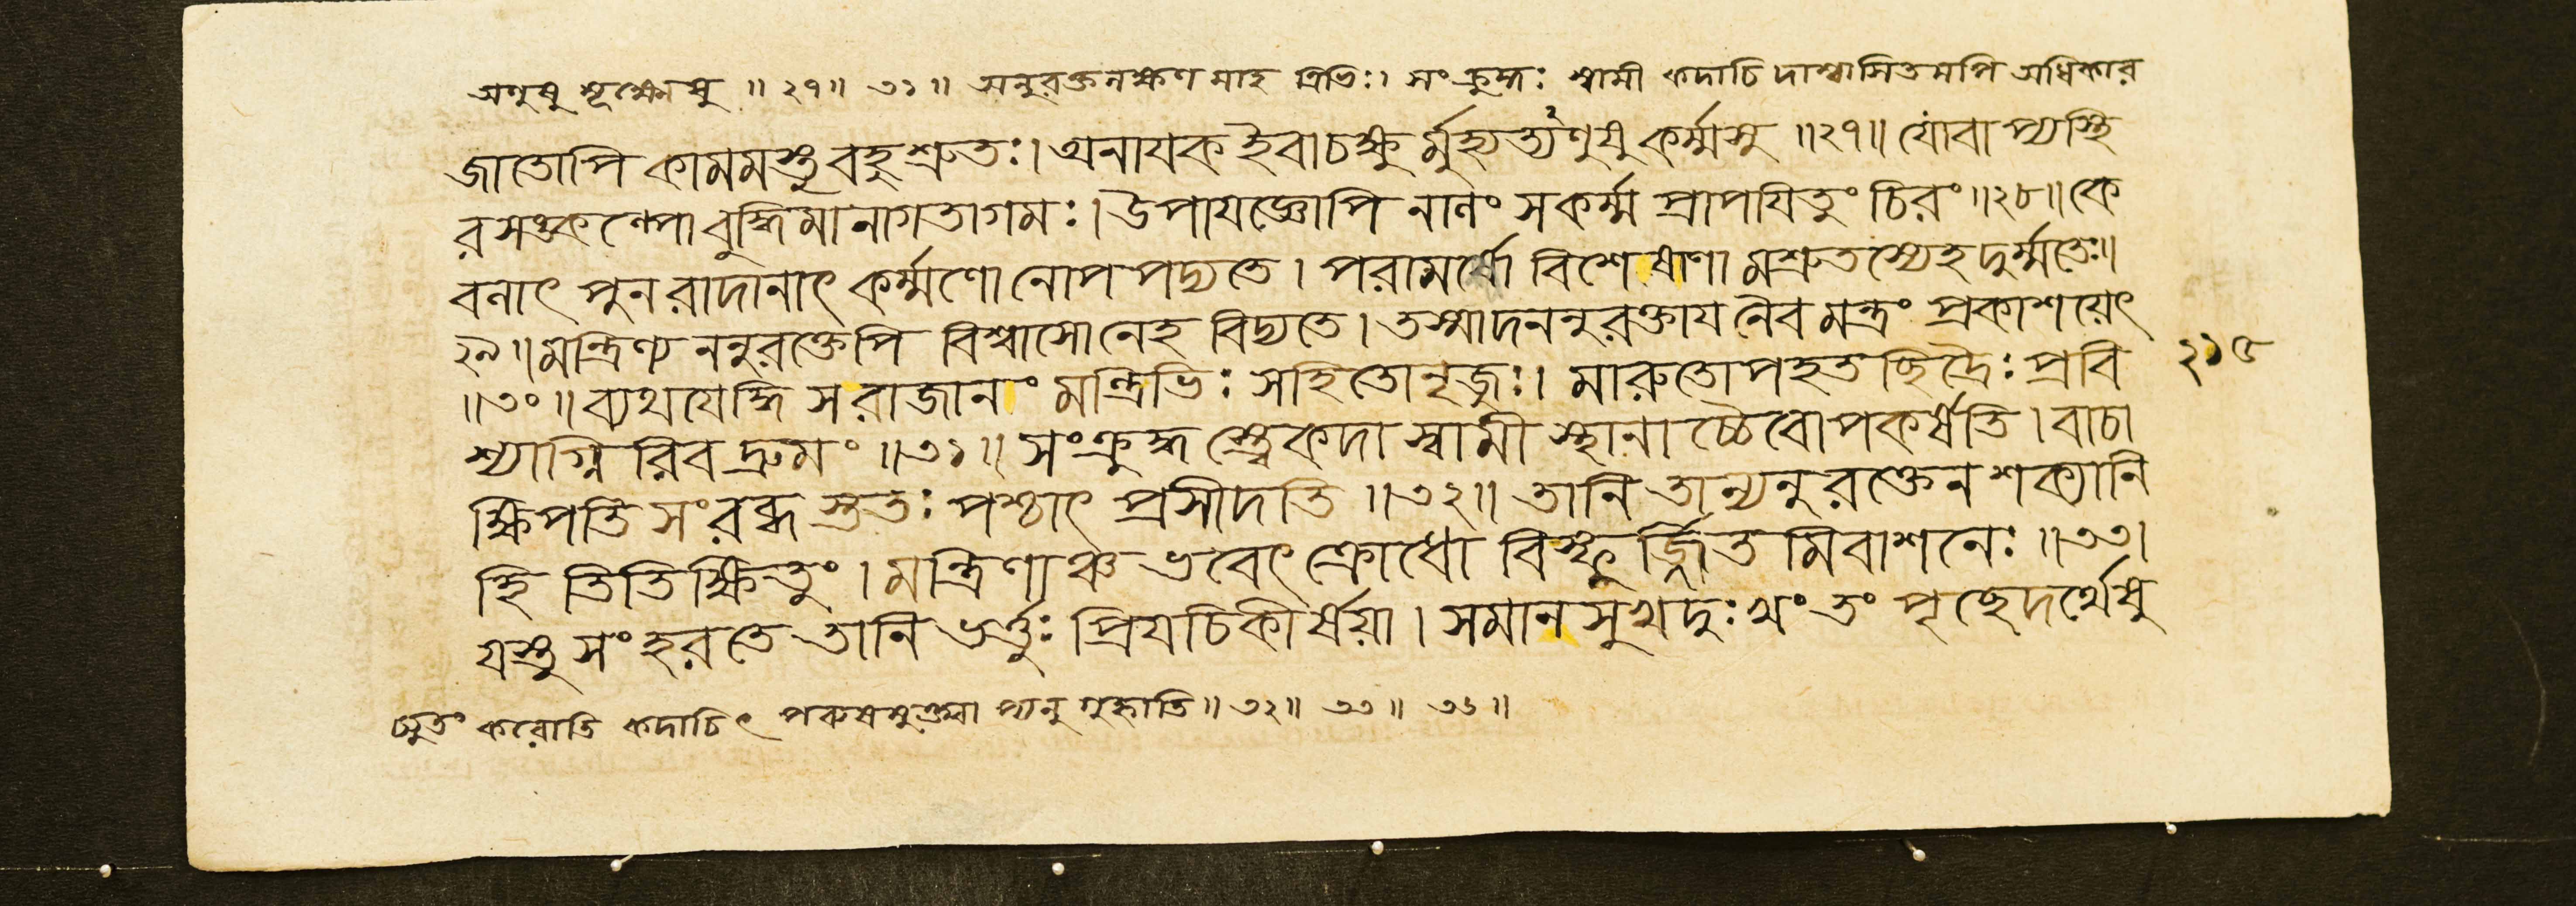 অণুষু সূক্ষ্মেষু ॥ ২৭॥ ৩১ ॥ অনুরক্তলক্ষণ মাহ ত্রিভিঃ। সংক্রুদ্ধঃ স্বামী কদাচিদাশ্বাসিতমপি অধিকার
জাতোপি কামমস্তু বহুশ্রুতঃ। অনাযক ইবাচক্ষু র্মুহ্যত্যণুষু কর্ম্মসু ॥২৭॥ যোবা প্যস্থি
রসঙ্কল্পো বুদ্ধিমানাগতাগমঃ। উপাযজ্ঞোপি নালং সকর্ম্ম প্রাপযিতুং চিরং॥২৮॥ কে
বলাৎ পুনরাদানাৎ কর্ম্মণো নোপপদ্যতে। পরামর্ষো বিশেষাণা মশ্রুতস্যেহ দুর্ম্মতেঃ॥
২৯॥মন্ত্রিণ্য ননুরক্তেপি বিশ্বাসোনেহ বিদ্যতে। তস্মাদননুরক্তায নৈব মন্ত্রং প্রকাশয়েৎ
॥৩০॥ব্যথযেদ্ধি সরাজানং মন্ত্রিভিঃ সহিতোনৃজুঃ। মারুতোপহত ছিদ্রৈঃ প্রবি
২১৫
শ্যাগ্নি রিব দ্রুমং॥৩১॥ সংক্রুদ্ধ স্ত্বেকদা স্বামী স্থানা চ্চৈবোপকর্ষতি। বাচা
ক্ষিপতি সংরব্ধ স্ততঃ পশ্চাৎ প্রসীদতি ॥৩২॥ তানি তান্যনুরক্তেন শক্যানি
হি তিতিক্ষিতুং। মন্ত্রিণাঞ্চ ভবেৎ ক্রোধো বিস্ফূর্জ্জিত মিবাশনেঃ॥৩৩।
যস্তু সংহরতে তানি ভর্ত্তুঃ প্রিযচিকীর্ষয়া। সমানসুখদুঃখং তং পৃচ্ছেদর্থেষু
চ্যুতং করোতি কদাচিৎ পরুষমুক্ত্বা প্যনু গৃহ্নাতি॥ ৩২॥ ৩৩॥ ৩৪॥